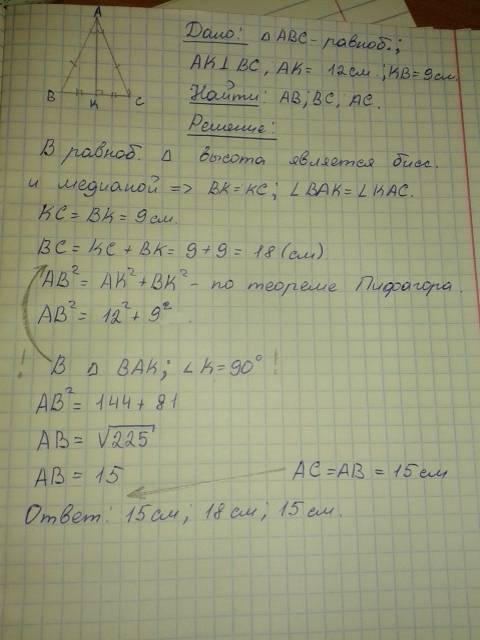 A
B
K
C
Дано: △ABC - равноб.;
AK⊥BC, AK = 12см; KB = 9см
Найти: AB; BC; AC.
Решение:
В равноб. △ высота является бисс.
и медианой => BK = KC; ∠BAK = ∠KAC.
KC = BK = 9см.
BC = KC + BK = 9 + 9 = 18 (см)
AB² = AK² + BK² - по теореме Пифагора.
AB² = 12² + 9²
! В △ BAK; ∠K = 90° !
AB² = 144 + 81
AB = √225
AB = 15
AC = AB = 15см
Ответ: 15см; 18см; 15см.